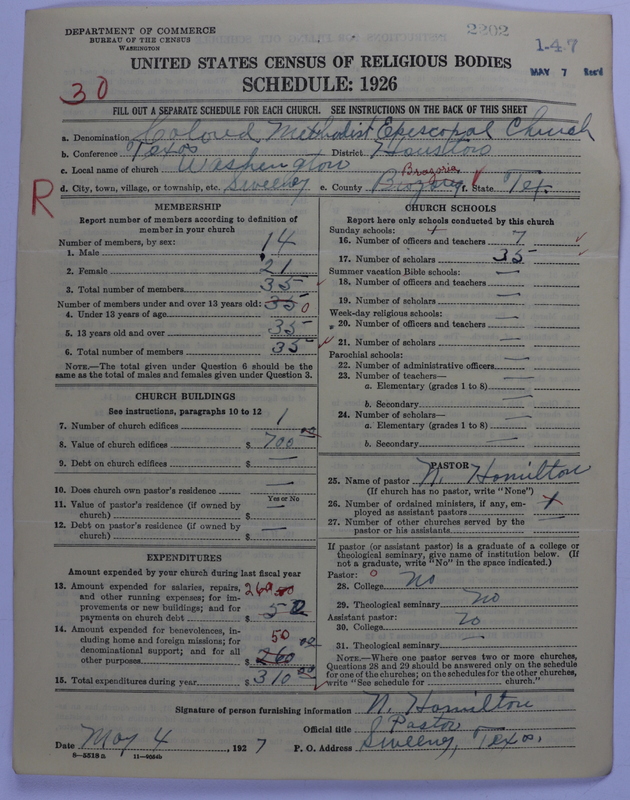 DEPARTMENT OF COMMERCE
BUREAU OF THE CENSUS
WASHINGTON
2202
1-47
MAY 7 Rec'd
UNITED STATES CENSUS OF RELIGIOUS BODIES
SCHEDULE: 1926
30
FILL OUT A SEPARATE SCHEDULE FOR EACH CHURCH. SEE INSTRUCTIONS ON THE BACK OF THIS SHEET
a. Denomination Colored Methodist Episcopal Church
b. Conference Texas District Houston
c. Local name of church Washington
Brazoria
d. City, town, village, or township, etc. Sweeney e. County Brazoria f. State Tex
R
MEMBERSHIP
Report number of members according to definition of member in your church
Number of members, by sex:
1. Male 14
2. Female 21
3. Total number of members 35
Number of members under and over 13 years old:
4. Under 13 years of age 35 0
5. 13 years old and over 35
6. Total number of members 35
NOTE.—The total given under Question 6 should be the same as the total of males and females given under Question 3.
CHURCH BUILDINGS
See instructions, paragraphs 10 to 12
7. Number of church edifices 1
8. Value of church edifices $ 700 00
9. Debt on church edifices $ —
10. Does church own pastor's residence —
Yes or No
11. Value of pastor's residence (if owned by church) $ —
12. Debt on pastor's residence (if owned by church) $ —
EXPENDITURES
Amount expended by your church during last fiscal year
13. Amount expended for salaries, repairs, and other running expenses; for improvements or new buildings; and for payments on church debt $ 260 50
14. Amount expended for benevolences, including home and foreign missions; for denominational support; and for all other purposes $ 50 260 00
15. Total expenditures during year $ 310 00
CHURCH SCHOOLS
Report here only schools conducted by this church
Sunday schools: +
16. Number of officers and teachers 7
17. Number of scholars 35
Summer vacation Bible schools: —
18. Number of officers and teachers
19. Number of scholars —
Week-day religious schools: —
20. Number of officers and teachers
21. Number of scholars —
Parochial schools:
22. Number of administrative officers —
23. Number of teachers—
a. Elementary (grades 1 to 8) —
b. Secondary —
24. Number of scholars—
a. Elementary (grades 1 to 8) —
b. Secondary —
PASTOR
25. Name of pastor N. Hamilton
(If church has no pastor, write "None")
26. Number of ordained ministers, if any, employed as assistant pastors
27. Number of other churches served by the pastor or his assistants —
If pastor (or assistant pastor) is a graduate of a college or theological seminary, give name of institution below. (If not a graduate, write "No" in the space indicated.)
Pastor: 0
28. College No
29. Theological seminary No
Assistant pastor:
30. College no
31. Theological seminary —
NOTE.—Where one pastor serves two or more churches, Questions 28 and 29 should be answered only on the schedule for one of the churches; on the schedules for the other churches, write "See schedule for church."
Signature of person furnishing information N. Hamilton
Official title Pastor
Date May 4, 1927 P. O. Address Sweeny, Texas.
8—5518a 11—9064b